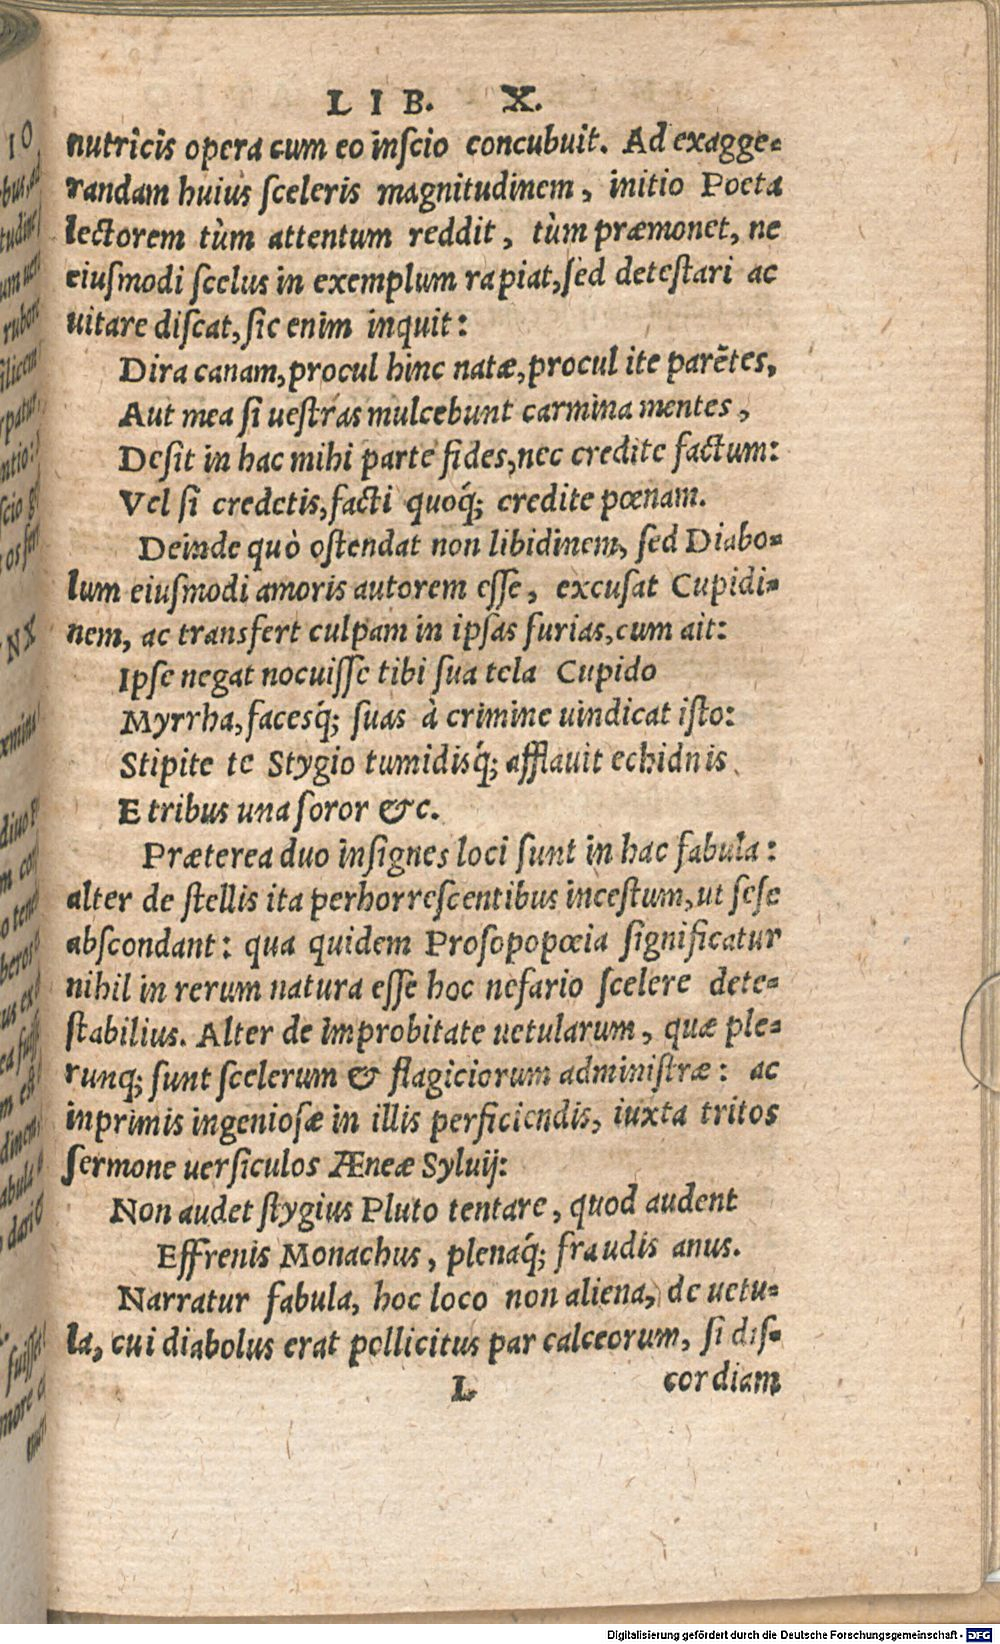 LIB. X.
nutricis opera cum eo inſcio concubuit. Ad exagge-
randam huius ſceleris magnitudinem, initio Poeta
lectorem tùm attentum reddit, tùm præmonet, ne
eiuſmodi ſcelus in exemplum rapiat, ſed deteſtari ac
uitare diſcat, ſic enim inquit:
Dira canam, procul hinc natæ, procul ite parẽtes,
Aut mea ſi ueſtras mulcebunt carmina mentes,
Deſit in hac mihi parte fides, nec credite factum:
Vel ſi credetis, facti quoq́; credite pœnam.
Deinde quò oſtendat non libidinem, ſed Diabo-
lum eiuſmodi amoris autorem eſſe, excuſat Cupidi-
nem, ac transfert culpam in ipſas furias, cum ait:
Ipſe negat nocuiſſe tibi ſua tela Cupido
Myrrha, facesq́; ſuas à crimine uindicat iſto:
Stipite te Stygio tumidisq́; afflauit echidnis
E tribus una ſoror &c.
Præterea duo inſignes loci ſunt in hac fabula:
alter de ſtellis ita perhorreſcentibus inceſtum, ut ſeſe
abſcondant: qua quidem Proſopopœia ſignificatur
nihil in rerum natura eſſe hoc nefario ſcelere dete-
ſtabilius. Alter de improbitate uetularum, quæ ple-
runq; ſunt ſcelerum & flagiciorum adminiſtræ: ac
inprimis ingenioſæ in illis perficiendis, iuxta tritos
ſermone uerſiculos Æneæ Syluij:
Non audet ſtygius Pluto tentare, quod audent
Effrenis Monachus, plenaq́; fraudis anus.
Narratur fabula, hoc loco non aliena, de uetu-
la, cui diabolus erat pollicitus par calceorum, ſi diſ-
L cordiam
Digitalisierung gefördert durch die Deutsche Forschungsgemeinschaft - DFG